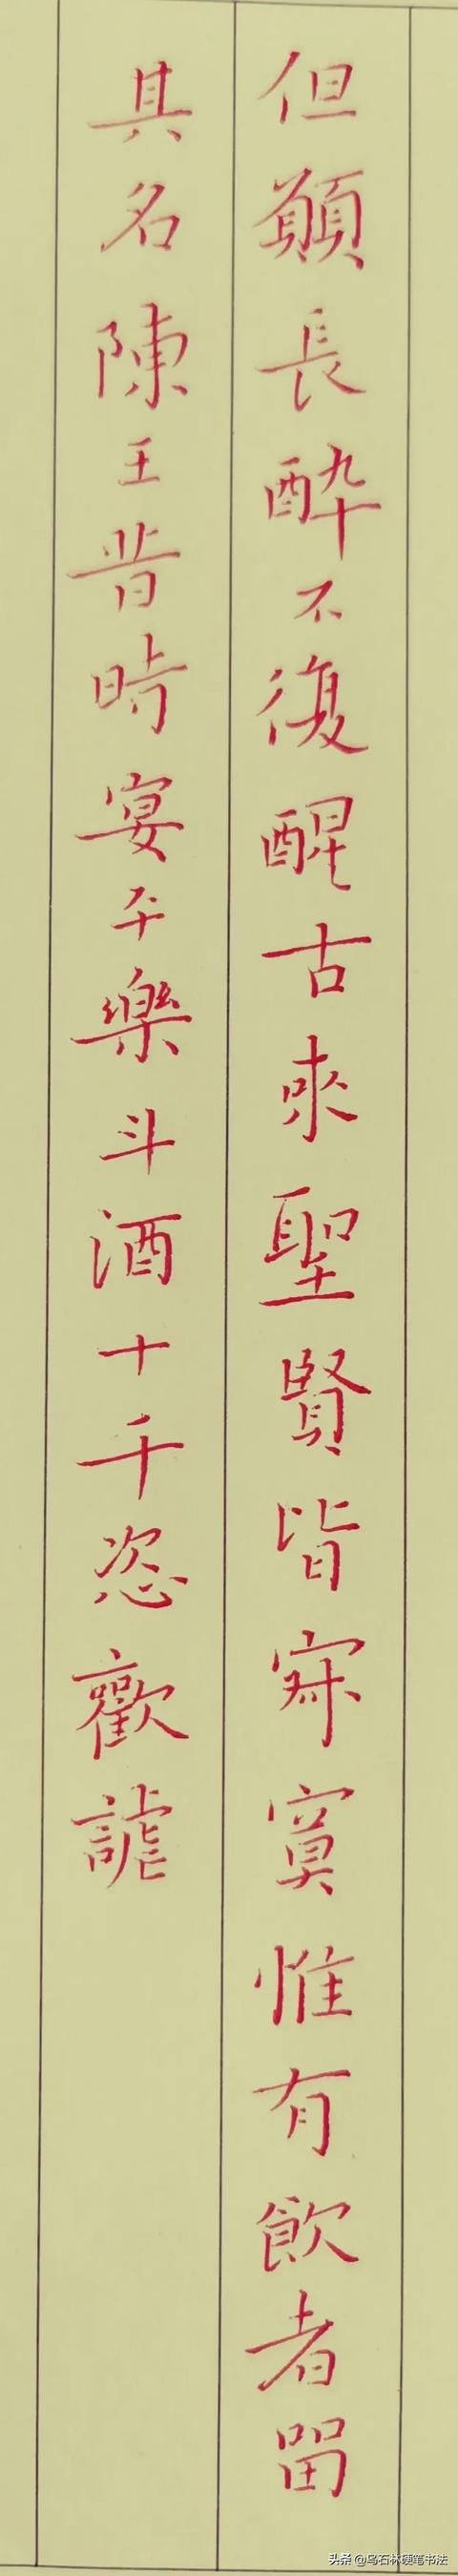 但願長醉不復醒古來聖賢皆寂寞惟有飲者留
其名陳王昔時宴平樂斗酒十千恣歡謔
头条 @乌石林硬笔书法